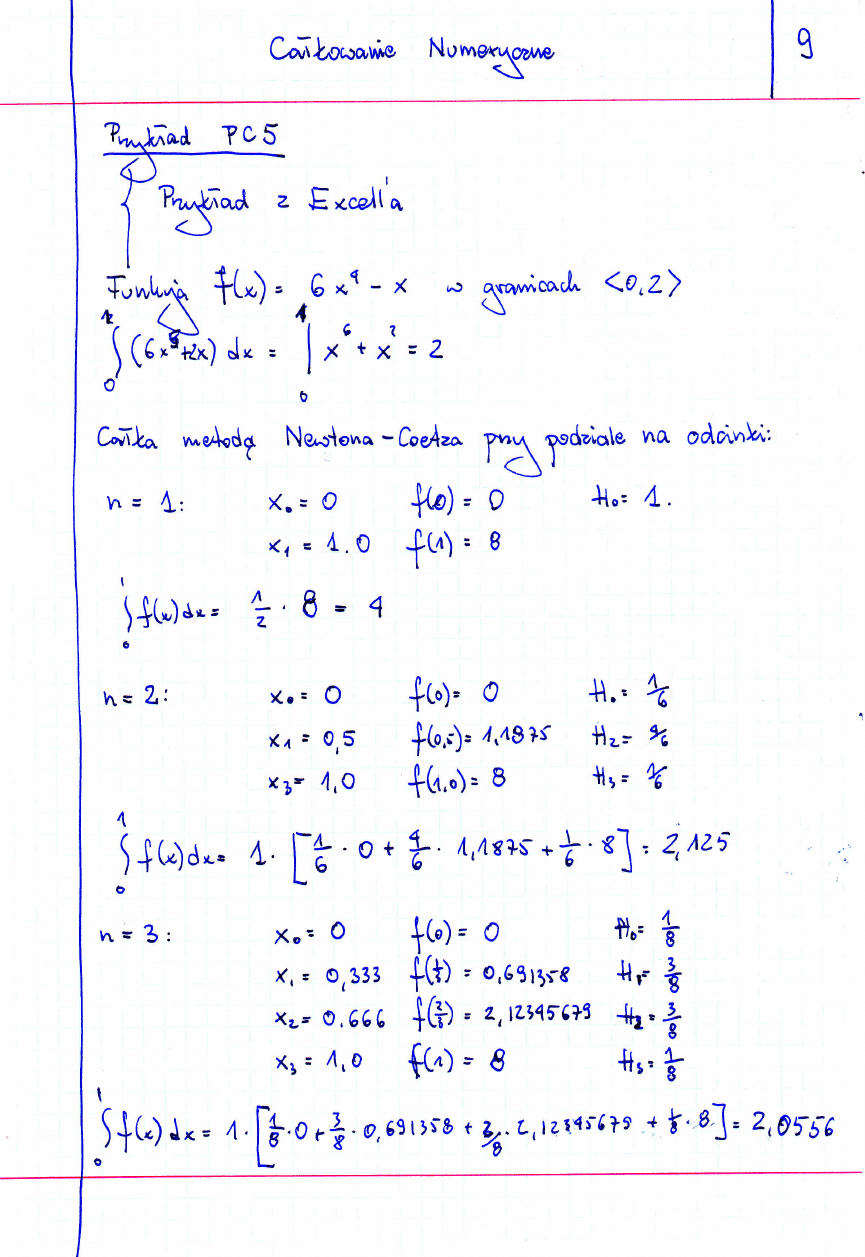 Całkowanie Numeryczne 9
Przykład PC5
Przykład z Excell'a
Funkcja f(x) = 6x⁴ - x w granicach <0,2>
∫₀¹ (6x⁵+2x) dx = |₀¹ x⁶ + x² = 2
Całka metodą Newtona-Coetza przy podziale na odcinki:
n = 1: x₀ = 0 f(0) = 0 H₀ = 1.
x₁ = 1.0 f(1) = 8
∫₀¹ f(x) dx = 1/2 · 8 = 4
n = 2: x₀ = 0 f(0) = 0 H₀ = 1/6
x₁ = 0,5 f(0,5) = 1,1875 H₂ = 4/6
x₃ = 1,0 f(1,0) = 8 H₃ = 1/6
∫₀¹ f(x) dx = 1 · [1/6 · 0 + 4/6 · 1,1875 + 1/6 · 8] = 2,125
n = 3: x₀ = 0 f(0) = 0 H₀ = 1/8
x₁ = 0,333 f(1/3) = 0,691358 H₁ = 3/8
x₂ = 0.666 f(2/3) = 2,12345679 H₂ = 3/8
x₃ = 1,0 f(1) = 8 H₃ = 1/8
∫₀¹ f(x) dx = 1 · [1/8 · 0 + 3/8 · 0,691358 + 3/8 · 2,12345679 + 1/8 · 8] = 2,0556